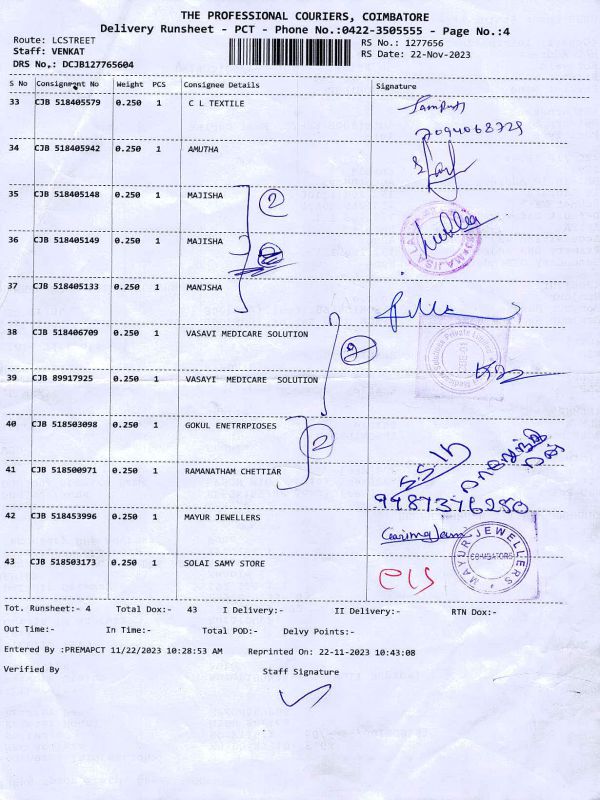 THE PROFESSIONAL COURIERS, COIMBATORE
Delivery Runsheet - PCT - Phone No.:0422-3505555 - Page No.:4
Route: LCSTREET
RS No.: 1277656
Staff: VENKAT
RS Date: 22-Nov-2023
DRS No.: DCJB127765604
S No Consignment No Weight PCS Consignee Details Signature
33 CJB 518405579 0.250 1 C L TEXTILE
34 CJB 518405942 0.250 1 AMUTHA
35 CJB 518405148 0.250 1 MAJISHA
2
36 CJB 518405149 0.250 1 MAJISHA
37 CJB 518405133 0.250 1 MANJSHA
38 CJB 518406709 0.250 1 VASAVI MEDICARE SOLUTION
39 CJB 89917925 0.250 1 VASAYI MEDICARE SOLUTION
40 CJB 518503098 0.250 1 GOKUL ENETRRPIOSES
2
41 CJB 518500971 0.250 1 RAMANATHAM CHETTIAR
9987376280
42 CJB 518453996 0.250 1 MAYUR JEWELLERS
MAYUR JEWELLERS
43 CJB 518503173 0.250 1 SOLAI SAMY STORE
Tot. Runsheet:- 4 Total Dox:- 43 I Delivery:- II Delivery:- RTN Dox:-
Out Time:- In Time:- Total POD:- Delvy Points:-
Entered By :PREMAPCT 11/22/2023 10:28:53 AM Reprinted On: 22-11-2023 10:43:08
Verified By Staff Signature